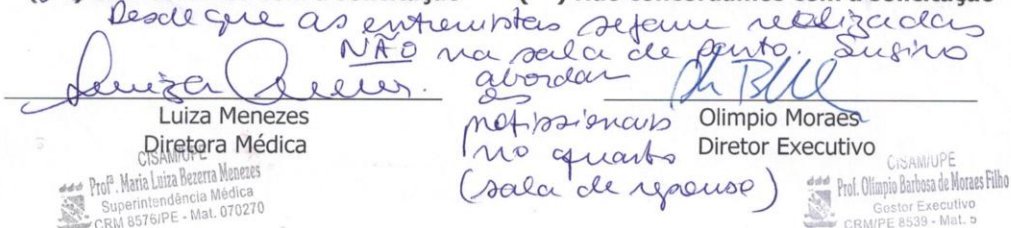 Desde que as entrevistas sejam realizadas
NÃO na sala de parto. Sugiro
abordar
os
profissionais
no quarto
(sala de repouso)
Luiza Menezes
Diretora Médica
CISAM/UPE
Profª. Maria Luiza Bezerra Menezes
Superintendência Médica
CRM 8576/PE - Mat. 070270
Olimpio Moraes
Diretor Executivo
CISAM/UPE
Prof. Olimpio Barbosa de Moraes Filho
Gestor Executivo
CRM/PE 8539 - Mat.